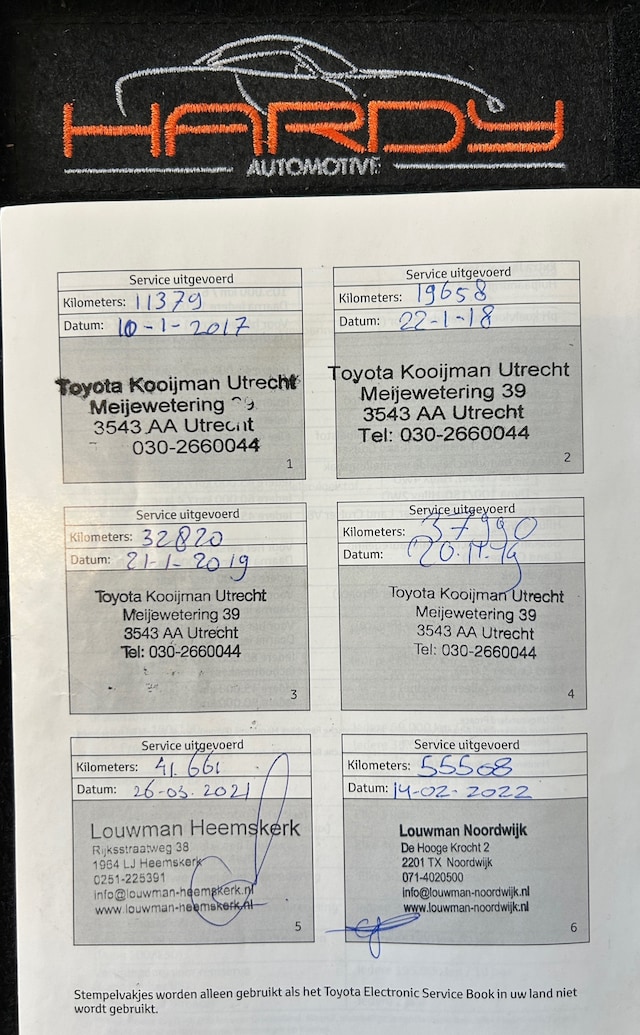 HARDY
AUTOMOTIVE
Service uitgevoerd
Kilometers: 11379
Datum: 10-1-2017
Toyota Kooijman Utrecht
Meijewetering 39
3543 AA Utrecht
030-2660044
1
Service uitgevoerd
Kilometers: 19658
Datum: 22-1-18
Toyota Kooijman Utrecht
Meijewetering 39
3543 AA Utrecht
Tel: 030-2660044
2
Service uitgevoerd
Kilometers: 32820
Datum: 21-1-2019
Toyota Kooijman Utrecht
Meijewetering 39
3543 AA Utrecht
Tel: 030-2660044
3
Service uitgevoerd
Kilometers: 37990
Datum: 20.11.19
Toyota Kooijman Utrecht
Meijewetering 39
3543 AA Utrecht
Tel: 030-2660044
4
Service uitgevoerd
Kilometers: 41.661
Datum: 26-03-2021
Louwman Heemskerk
Rijksstraatweg 38
1964 LJ Heemskerk
0251-225391
info@louwman-heemskerk.nl
www.louwman-heemskerk.nl
5
Service uitgevoerd
Kilometers: 55508
Datum: 14-02-2022
Louwman Noordwijk
De Hooge Krocht 2
2201 TX Noordwijk
071-4020500
info@louwman-noordwijk.nl
www.louwman-noordwijk.nl
6
Stempelvakjes worden alleen gebruikt als het Toyota Electronic Service Book in uw land niet
wordt gebruikt.